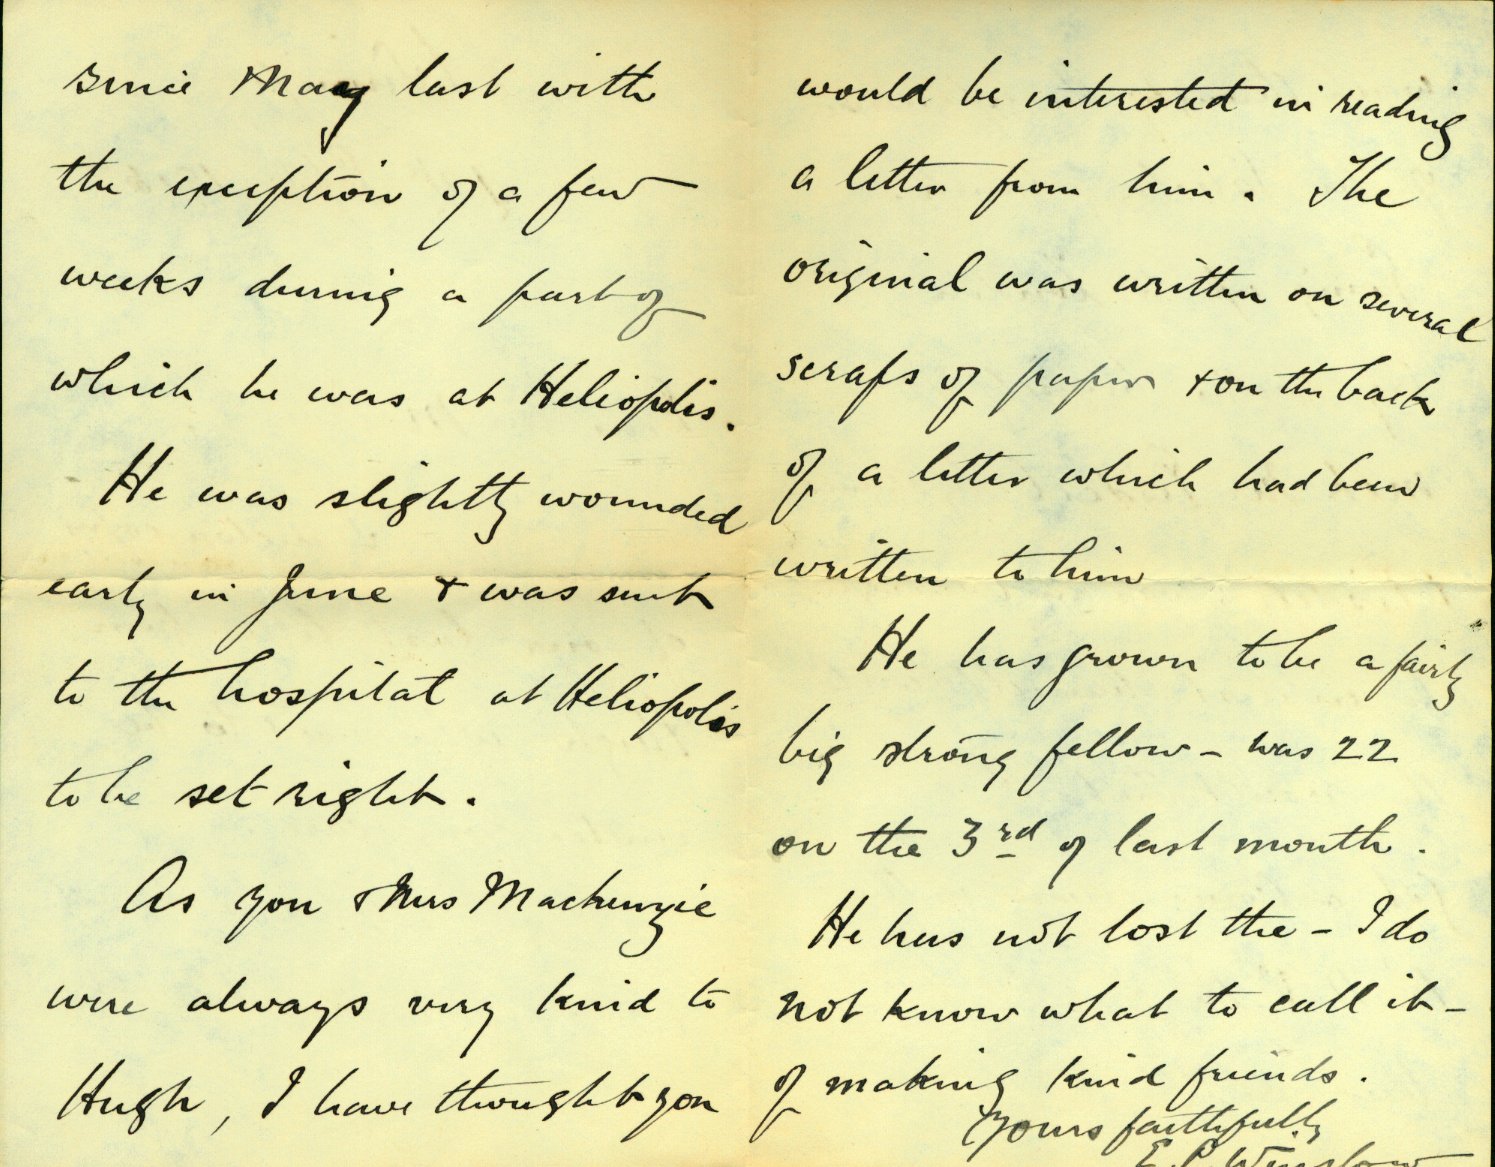 since May last with
the exception of a few
weeks during a part of
which he was at Heliopolis.
He was slightly wounded
early in June & was sent
to the hospital at Heliopolis
to be set right.
As you & Mrs Mackenzie
were always very kind to
Hugh, I have thought you
would be interested in reading
a letter from him. The
original was written on several
scraps of paper & on the back
of a letter which had been
written to him
He has grown to be a fairly
big strong fellow - was 22
on the 3rd of last month.
He has not lost the - I do
not know what to call it -
of making kind friends.
Yours faithfully
E. P. Winslow